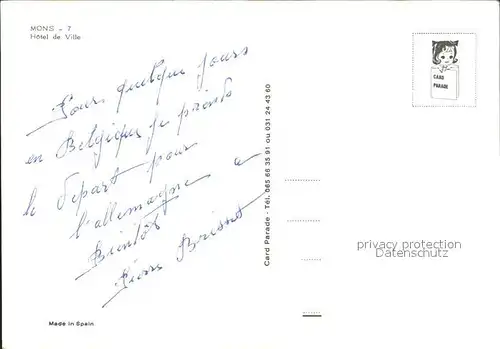 MONS - 7
Hôtel de Ville
Pour quelque jours
en Belgique je prends
le départ pour
l'allemagne a
Bientôt
Pierre Brisset
Card Parade - Tél. 065 66 35 91 ou 031 24 43 60
CARD
PARADE
privacy protection
Datenschutz
Made in Spain